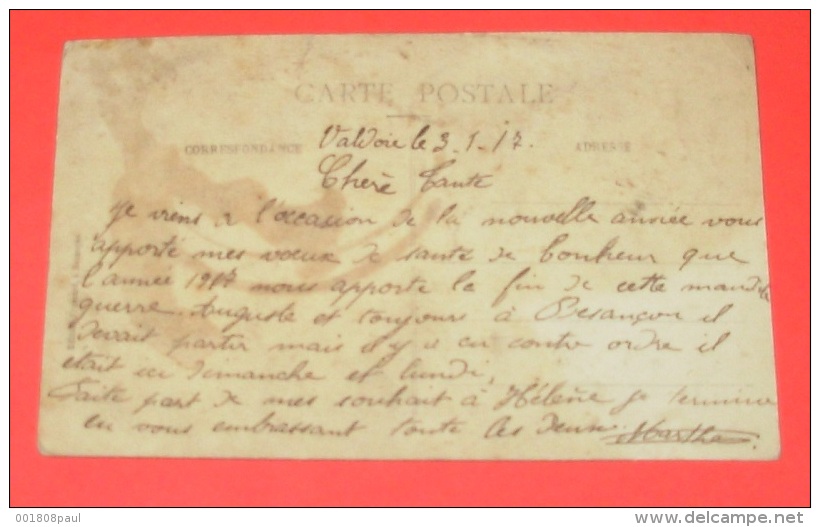 CARTE POSTALE
CORRESPONDANCE
ADRESSE
Valdoie le 3.1.17.
Chère Tante
Je viens a l'occasion de la nouvelle année vous
apporté mes vœux de santé de bonheur que
l'année 1917 nous apporte la fin de cette maudite
guerre. Auguste et toujours à Besançon il
devait partir mais il y a eu contre ordre il
etait ici dimanche et lundi,
Faite part de mes souhait à Hélène je termine
en vous embrassant toute les deux. Marthe.
001808paul